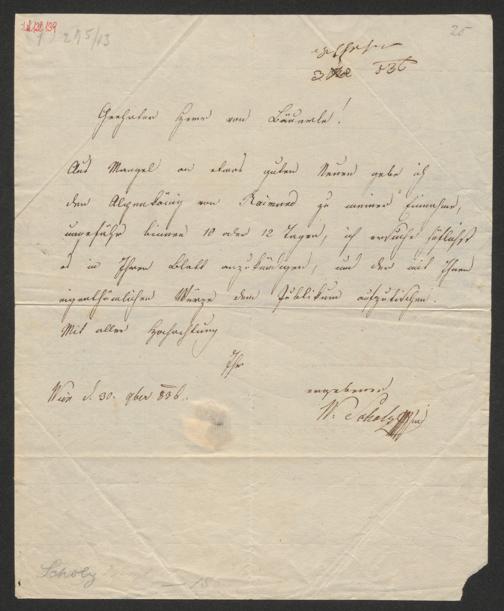 275/13
25
836
Geehrter Herr von Bäuerle!
Aus Mangel an etwas guten Neuen gebe ich
den Alpenkönig von Raimund zu meiner Einnahme,
ungefähr binnen 10 oder 12 Tagen, ich ersuche höflichst
es in Ihrem Blatt anzukündigen, und der mit Ihrer
eigenthümlichen Würze dem Publikum aufzutischen.
Mit aller Hochachtung
Ihr
ergebener
Wien d. 30. 9ber 836.
W. Scholz
Scholz
15